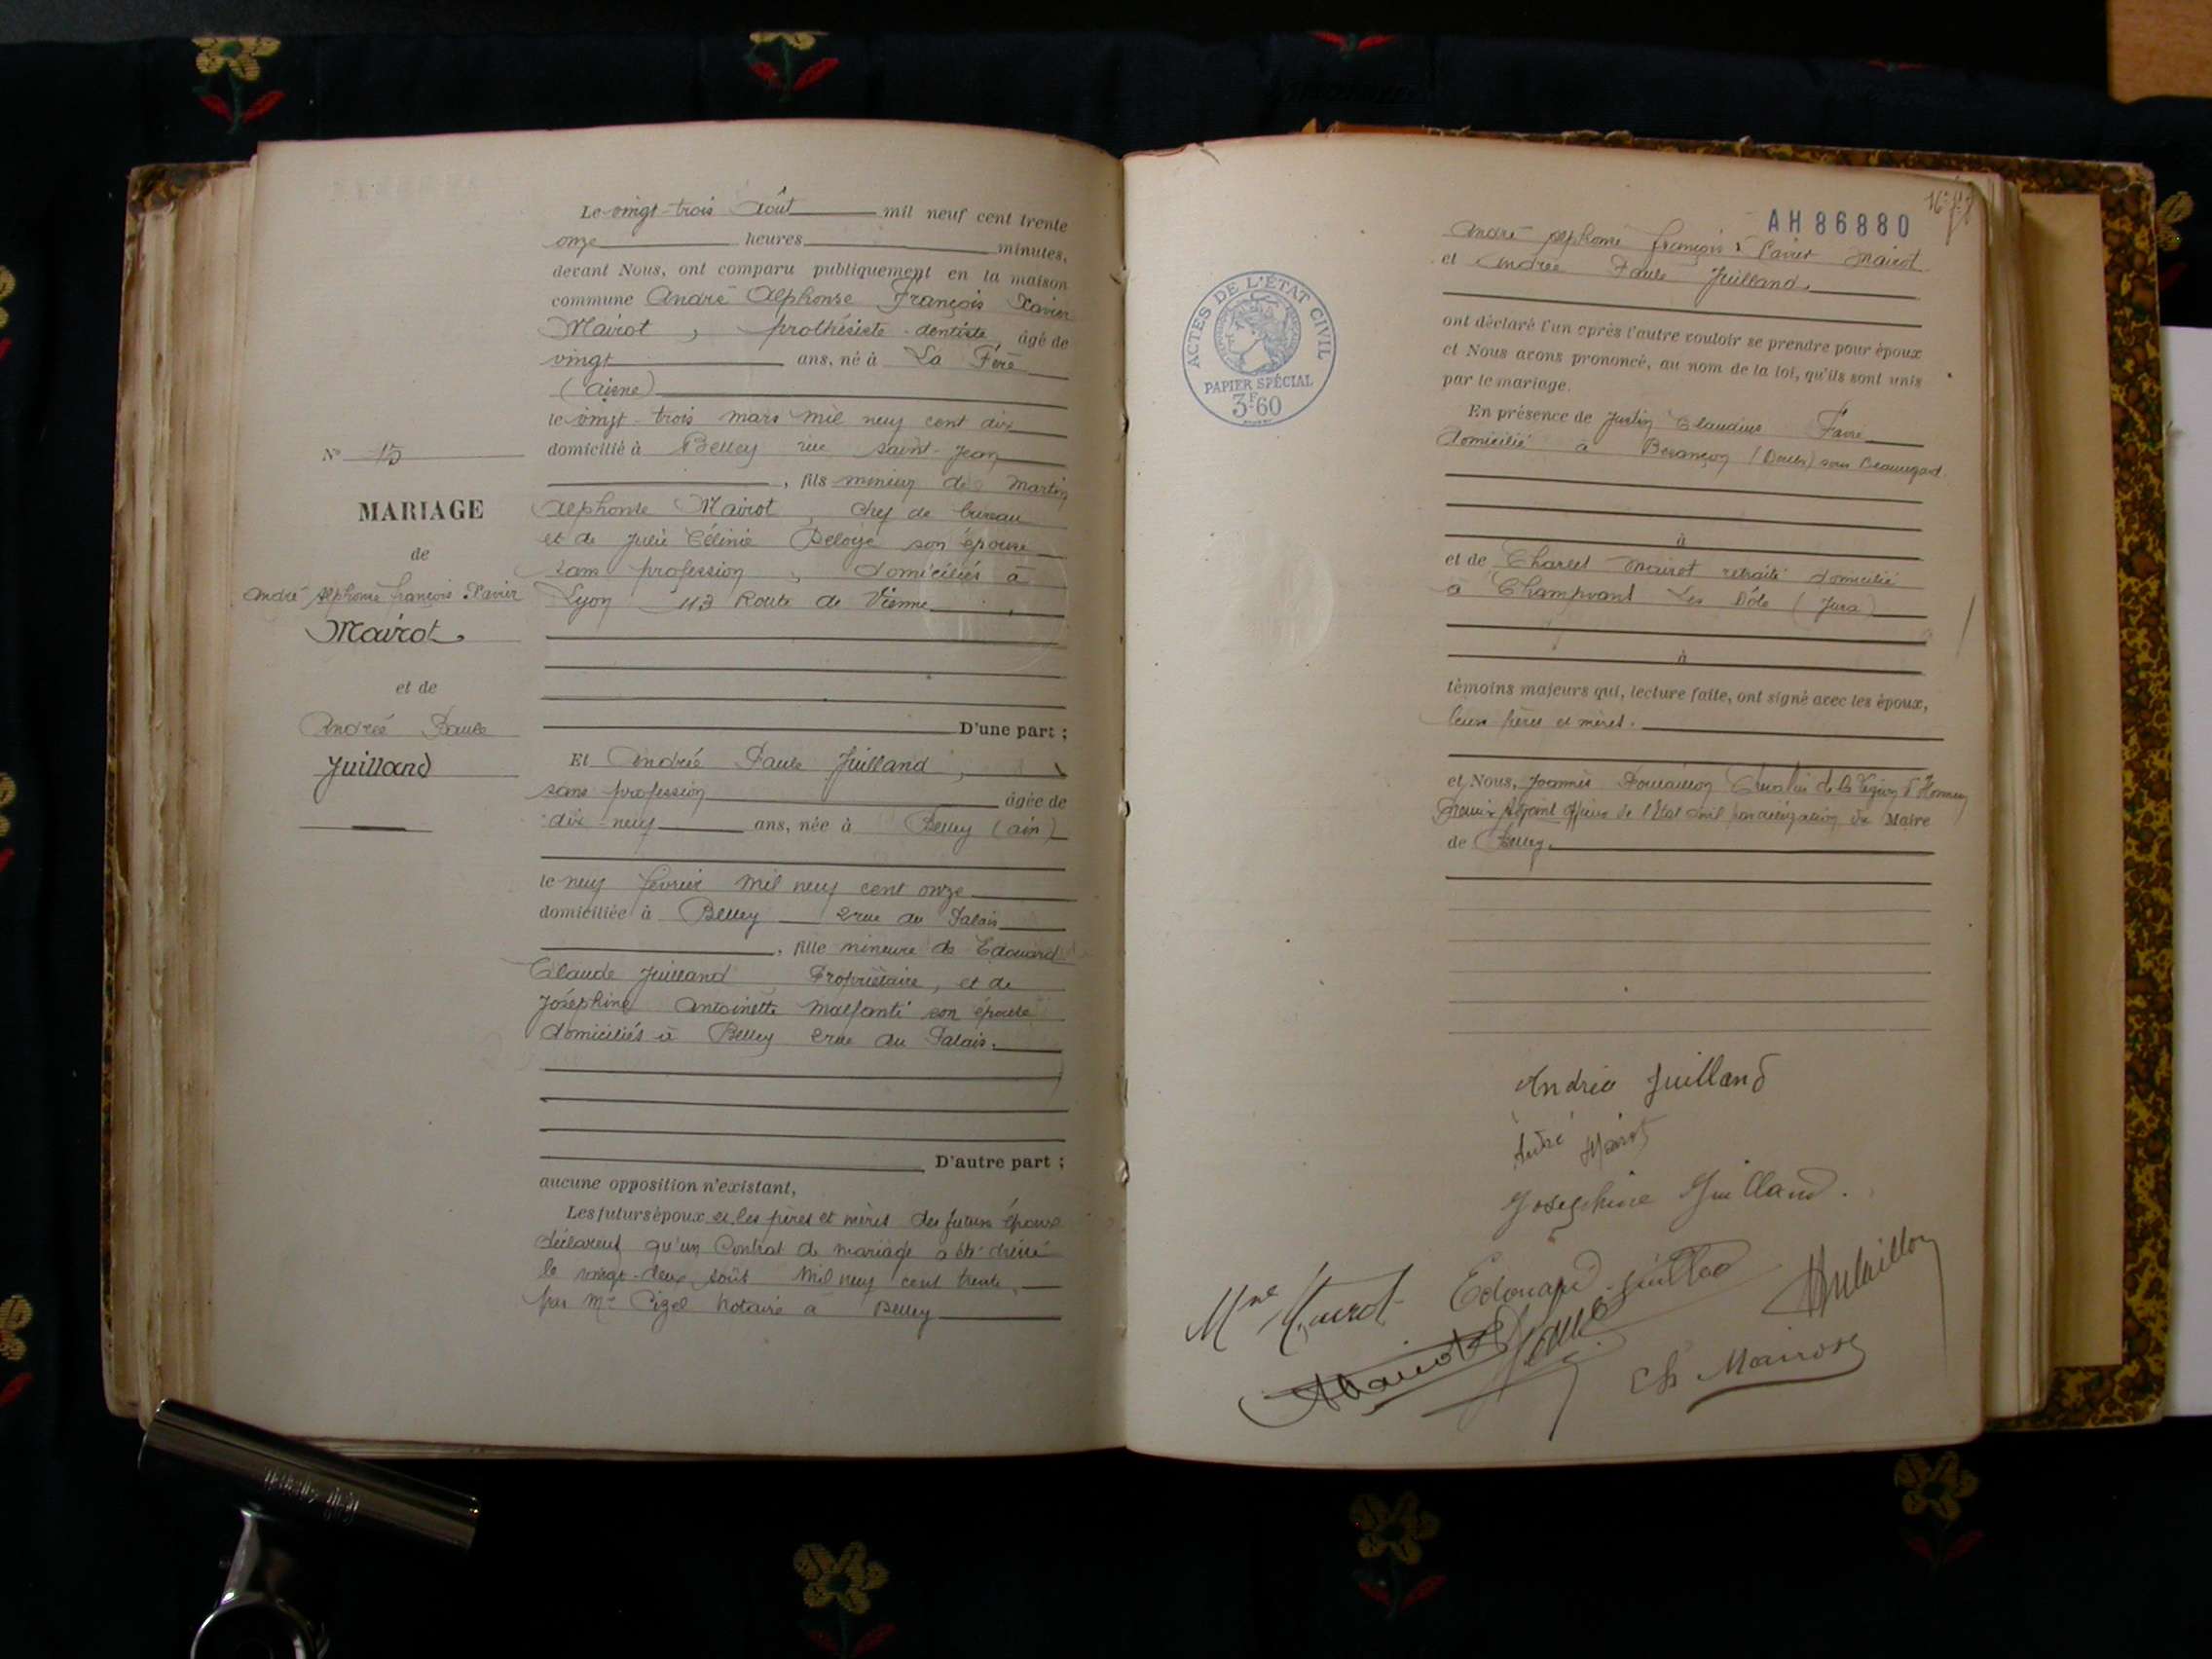 Le vingt-trois Août mil neuf cent trente
onze heures minutes,
devant Nous, ont comparu publiquement en la maison
commune André Alphonse François Xavier
Mairot, prothésiste-dentiste, âgé de
vingt ans, né à La Fère
(Aisne)
le vingt-trois mars mil neuf cent dix
domicilié à Belley rue Saint-Jean
, fils mineur de Martin
Alphonse Mairot, chef de bureau
et de Julie Célinie Deloye son épouse
sans profession, domiciliés à
Lyon 113 Route de Vienne
D'une part ;
Et Andrée Paule Juilland,
sans profession âgée de
dix-neuf ans, née à Belley (Ain)
le neuf février mil neuf cent onze
domiciliée à Belley 2 rue du Palais
, fille mineure de Edouard
Claude Juilland Propriétaire, et de
Joséphine Antoinette Malfanti son épouse
domiciliés à Belley 2 rue du Palais.
D'autre part ;
aucune opposition n'existant,
Les futurs époux et les pères et mères des futurs époux
déclarent qu'un contrat de mariage a été dressé
le vingt-deux août mil neuf cent trente,
par Me notaire à Belley
N° 15
MARIAGE
de
André Alphonse François Xavier
Mairot
et de
Andrée Paule
Juilland
AH 86880
André Alphonse François Xavier Mairot
et Andrée Paule Juilland.
ont déclaré l'un après l'autre vouloir se prendre pour époux
et Nous avons prononcé, au nom de la loi, qu'ils sont unis
par le mariage.
En présence de Justin Claudius Favre
domicilié à Besançon (Doubs) sous Beauregard
à
et de Charles Mairot retraité domicilié
à Champvans Les Dôle (Jura)
à
témoins majeurs qui, lecture faite, ont signé avec les époux,
leurs pères et mères.
et Nous, Joannès Chevalier de la Légion d'Honneur
Premier Adjoint Officier de l'Etat civil par délégation du Maire
de Belley.
ACTES DE L'ÉTAT CIVIL
PAPIER SPÉCIAL
3F60
Andrée Juilland
André Mairot
Joséphine Juilland.
Mme Mairot
Edouard Juilland
Mairot
Ch Mairot